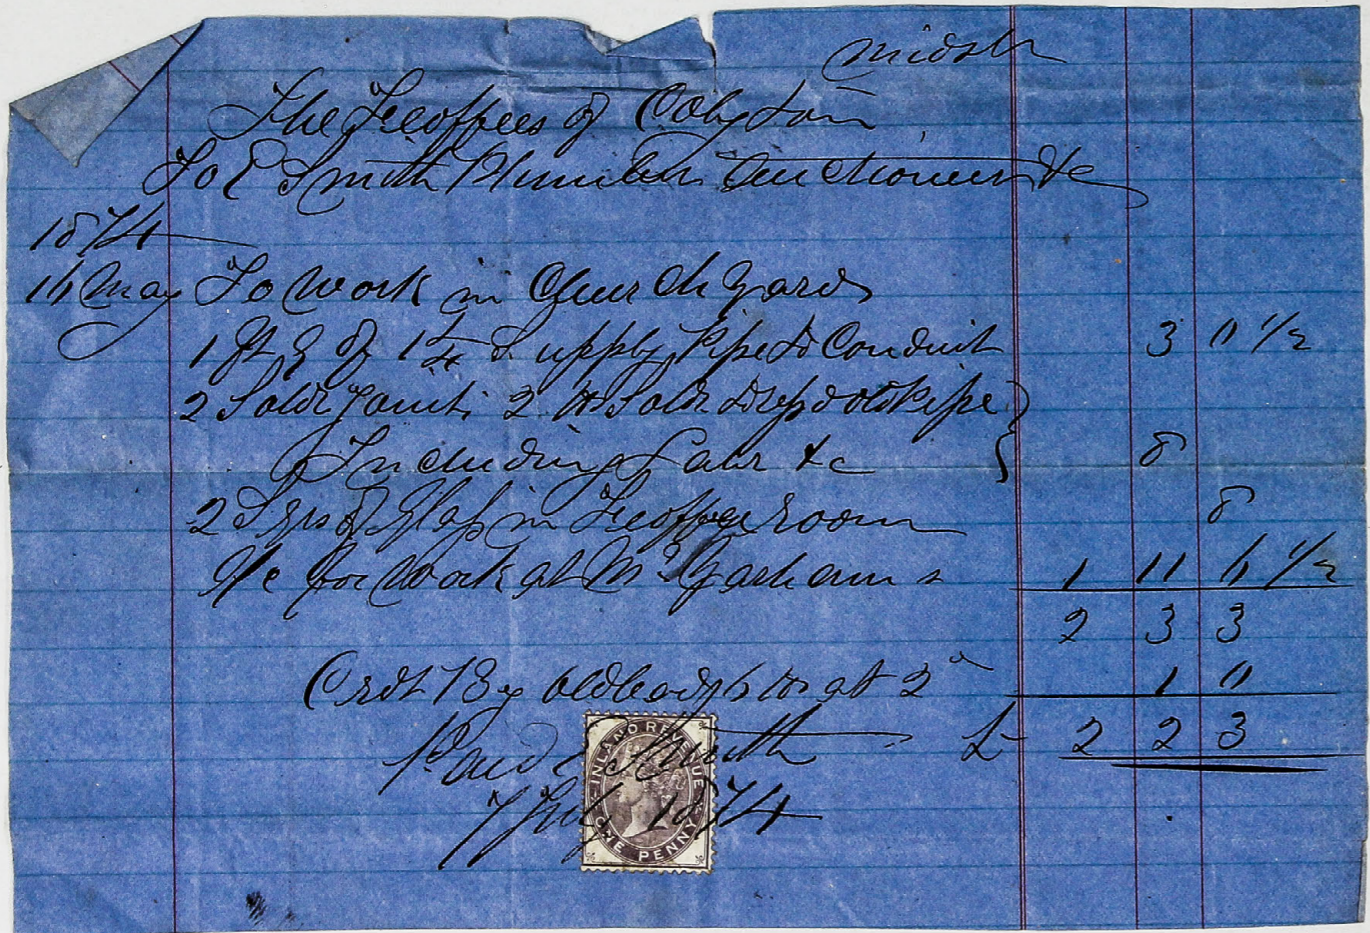 Midsr
The Feoffees of Colyton
To E Smith Plumber Auctioneer &c
1874
16 May To Work in Church Yard
1 ft 9 of 1 1/4 Supply Pipe to Conduit 3 " 1/2
2 Soldr Joints 2 lb Soldr old Pipe
Including Labr &c 8
2 Sqrs of Glass in Feoffee room 8
a/c for Work at Mr 1 11 6 1/2
2 3 3
Crdt By old lead 6 lb at 2d 1 "
Paid E Smith £ 2 2 3
7 July 1874
INLAND REVENUE
ONE PENNY